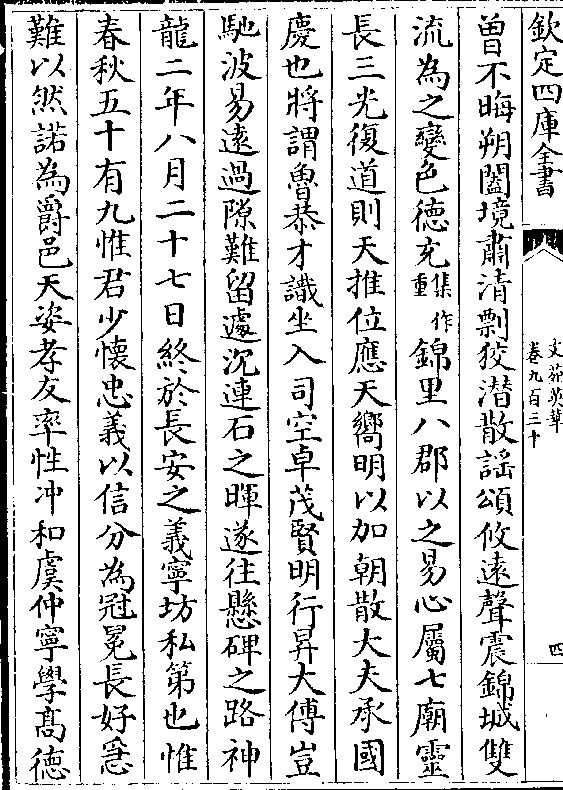 欽定四庫全書
文苑英華
卷九百三十
四
曽不晦朔闔境肅清剽狡潛散謡頌攸遠聲震錦城雙
流為之變色德充集作重錦里八郡以之易心屬七廟靈
長三光復道則天推位應天嚮明以加朝散大夫承國
慶也將謂魯恭才識坐入司空卓茂賢明行昇大傅豈
馳波易逺過隙難留遽沉連石之暉遂往懸碑之路神
龍二年八月二十七日終於長安之義寧坊私第也惟
春秋五十有九惟君少懷忠義以信分為冠冕長好
難以然諾為爵邑天姿孝友率性冲和虞仲寧學髙徳